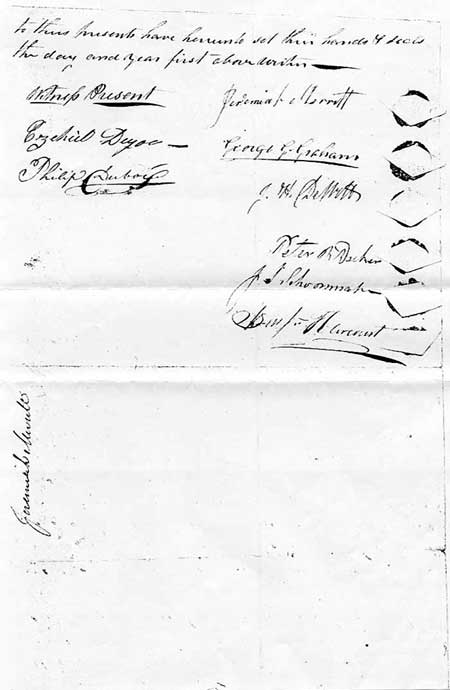 to these presents have hereunto set their hands & seals
the day and year first above written
Witness Present
Jeremiah Merritt
Ezekiel Deyoe
George G. Graham
Philip Dubois
J. H. DeWitt
Peter B Decker
J. S Schoonmaker
Harcourt
Jeremiah Merritt